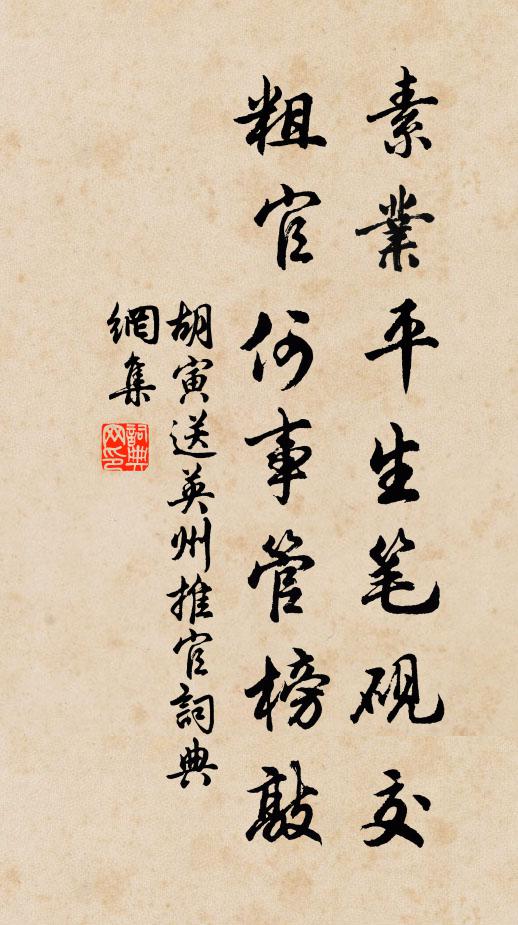 素業平生笔硯交
粗官何事管榜敲
胡寅送英州推官詞典
網集
詞典網印